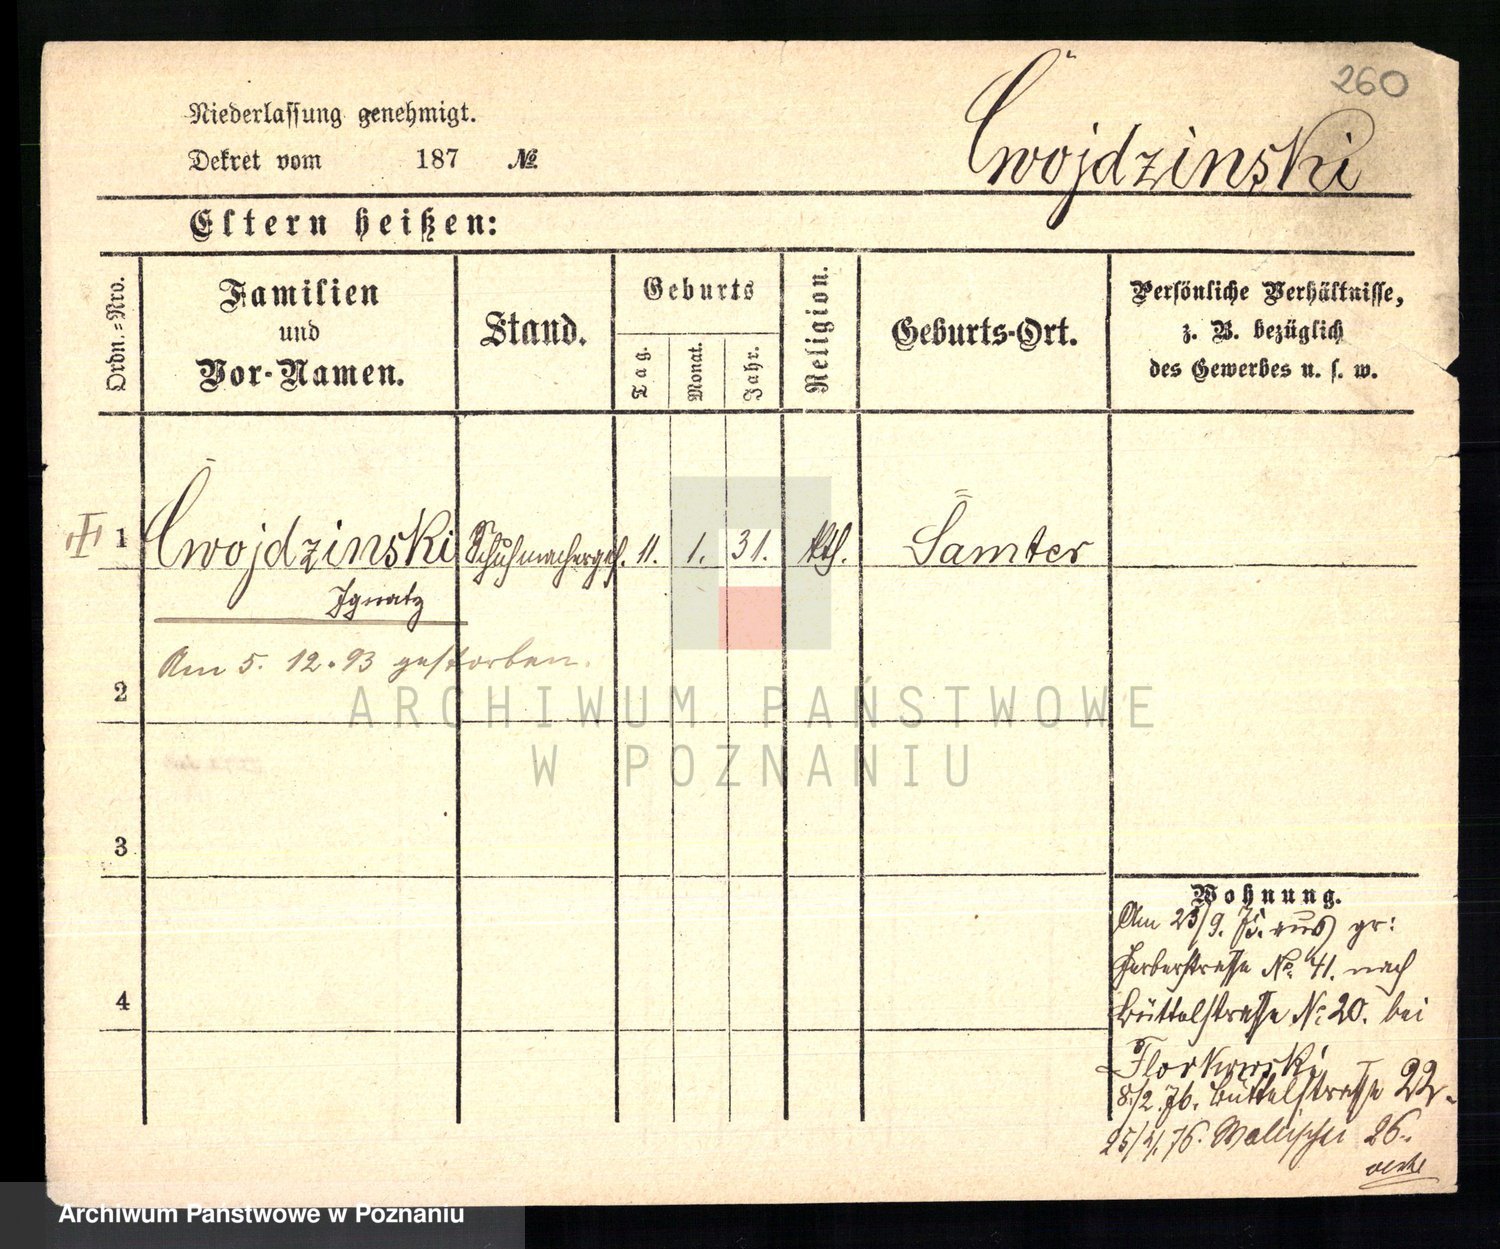 260
Niederlassung genehmigt.
Cwojdzinski
Dekret vom 187 №
Eltern heißen:
Ordn.-Nro.
Familien
und
Vor-Namen.
Stand.
Geburts
Tag.
Monat.
Jahr.
Religion.
Geburts-Ort.
Persönliche Verhältnisse,
z. B. bezüglich
des Gewerbes u. s. w.
1 Cwojdzinski Schuhmachergs. 11. 1. 31. kth. Samter
Ignatz
Am 5. 12. 93 gestorben.
2
3
4
Wohnung.
Am 23/9. 75. aus gr:
Gerberstrasse No. 41. nach
Büttelstrasse No 20. bei
Florkowski
8/2. 76. Büttelstrasse 22.
25/4. 76. Wallischei 26.
ARCHIWUM PAŃSTWOWE
W POZNANIU
Archiwum Państwowe w Poznaniu